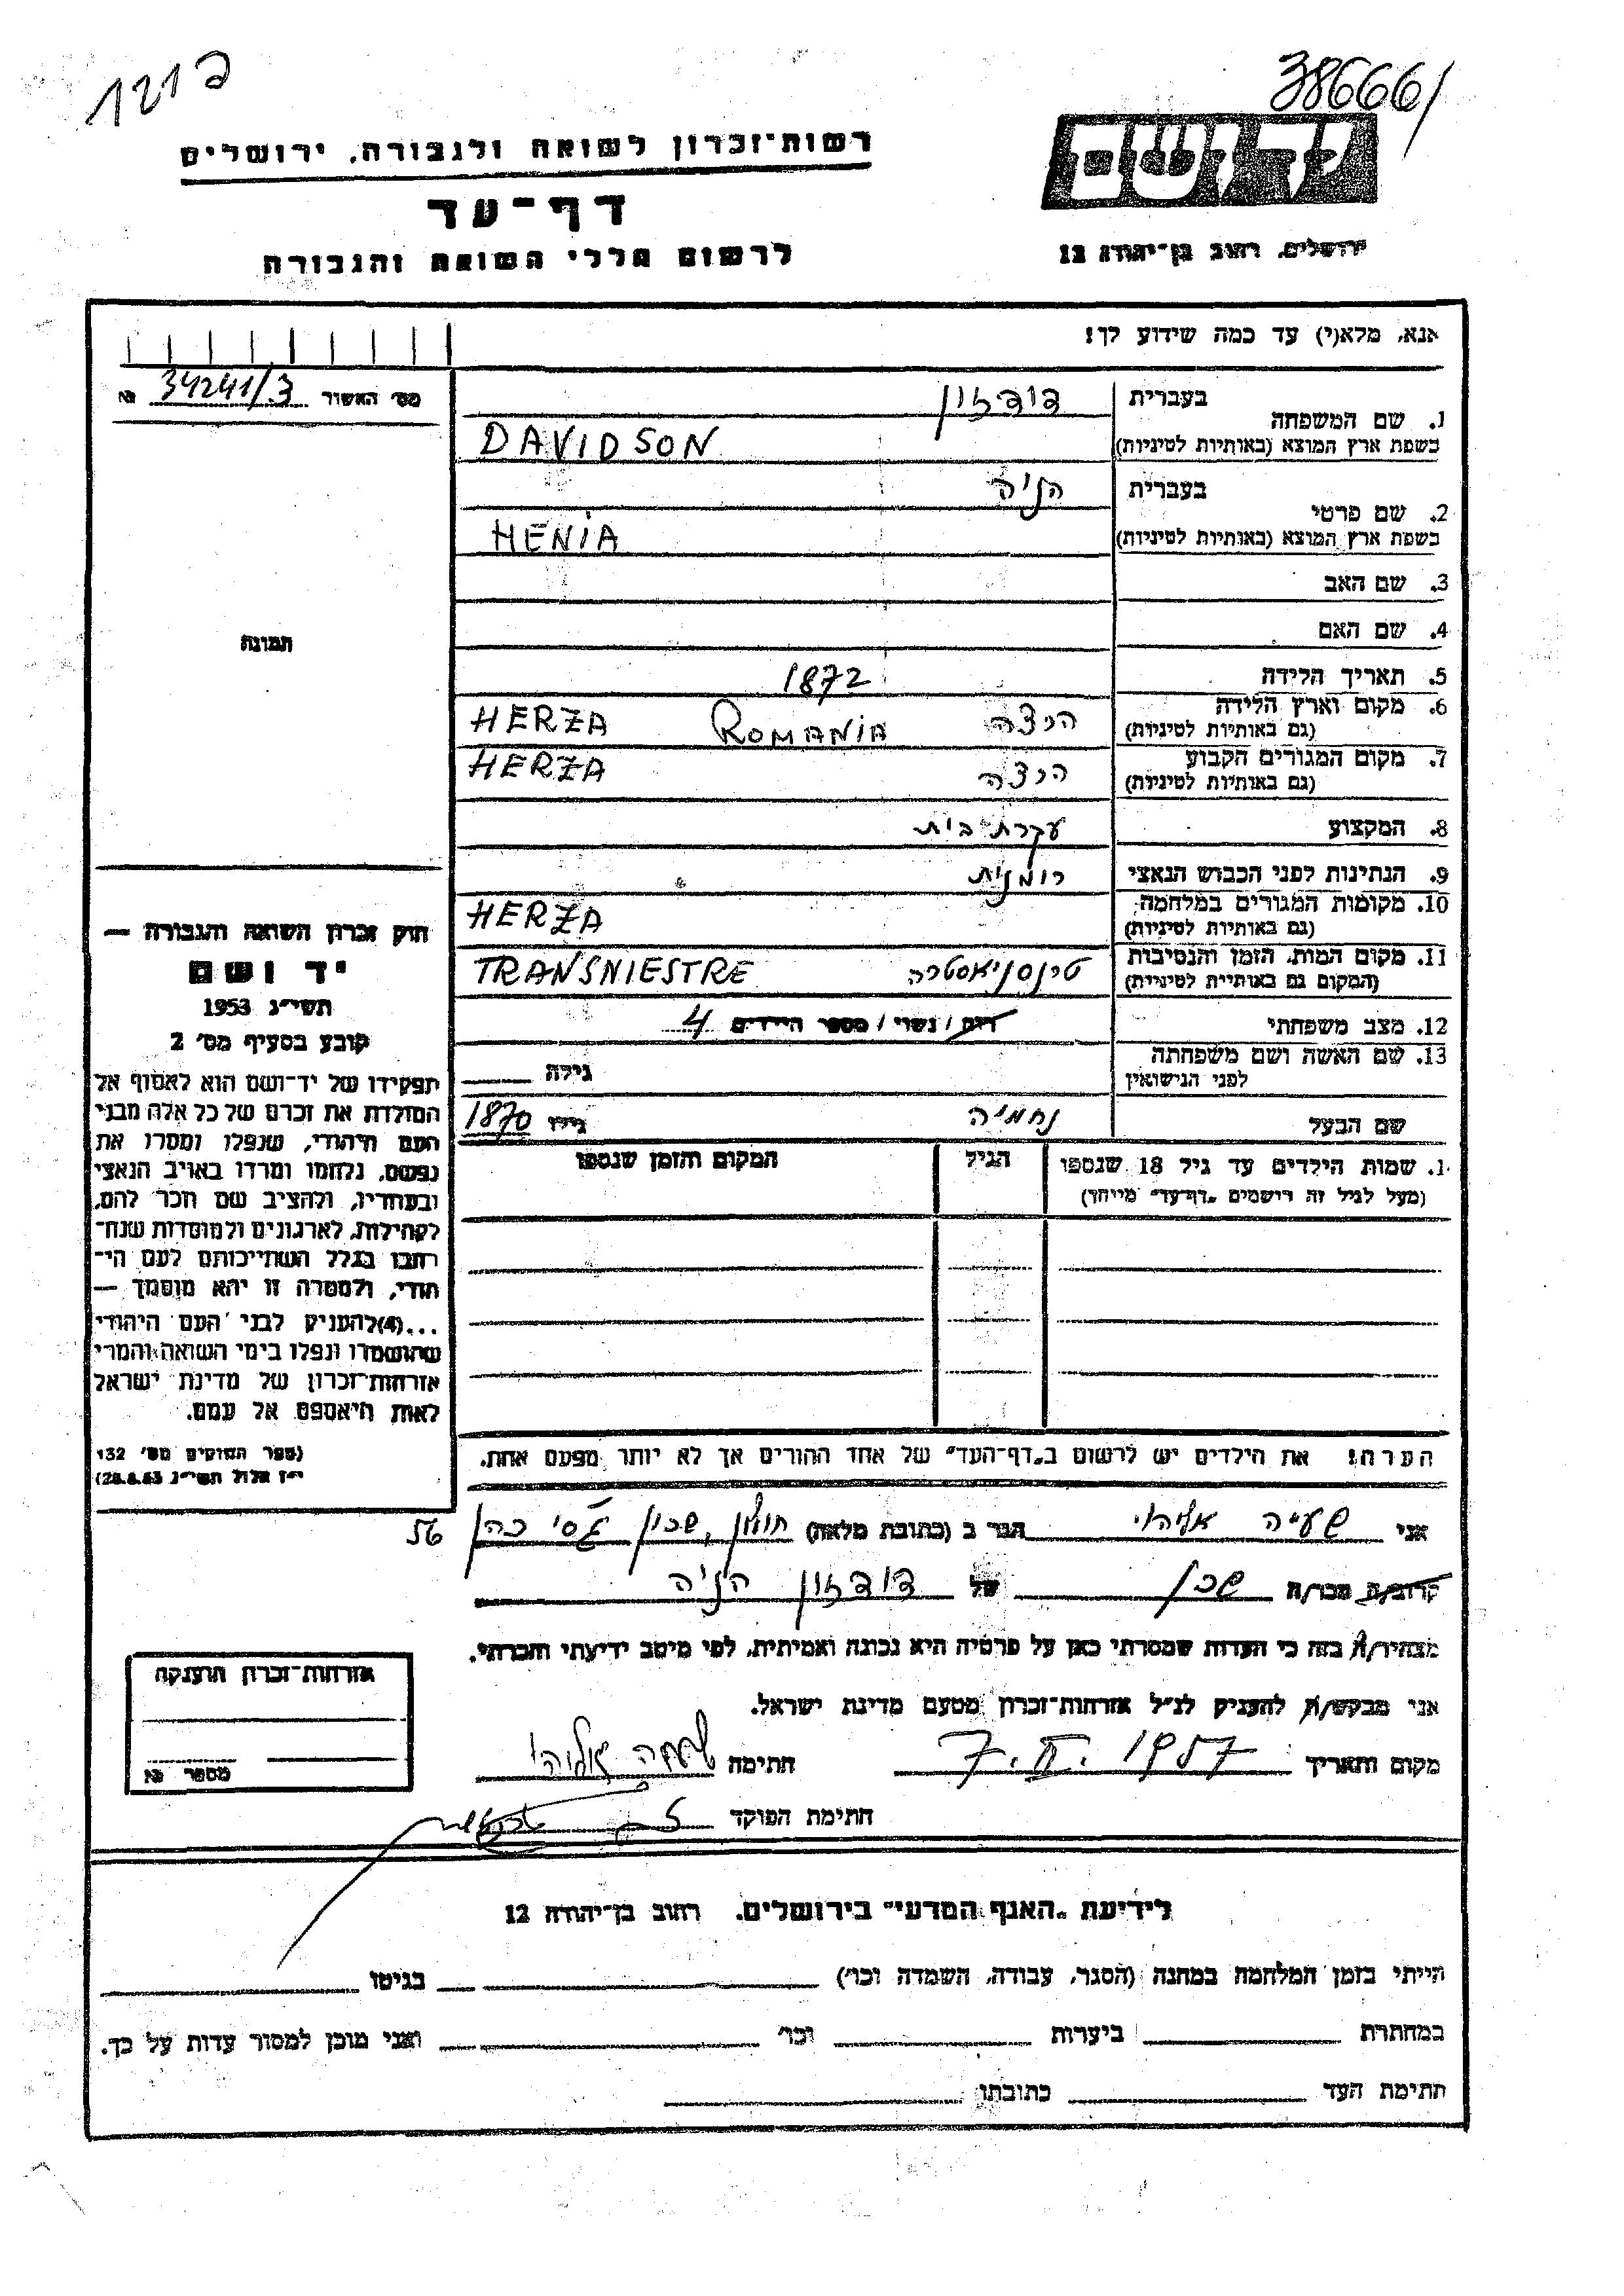 דפ121
386661
רשות־זכרון לשואה ולגבורה, ירושלים
יד ושם
דף־עד
ירושלים, רחוב בן־יהודה 12
לרשום חללי השואה והגבורה
אנא, מלא(י) עד כמה שידוע לך!
מס׳ האשור 34241/3 נא
1. שם המשפחה
בעברית דודזון
בשפת ארץ המוצא (באותיות לטיניות) DAVIDSON
2. שם פרטי
בעברית הניה
בשפת ארץ המוצא (באותיות לטיניות) HENIA
3. שם האב
4. שם האם
5. תאריך הלידה 1872
6. מקום וארץ הלידה
(גם באותיות לטיניות) הרצה ROMANIA HERZA
7. מקום המגורים הקבוע
(גם באותיות לטיניות) הרצה HERZA
8. המקצוע עקרת בית
9. הנתינות לפני הכבוש הנאצי רומנית
10. מקומות המגורים במלחמה
(גם באותיות לטיניות) HERZA
11. מקום המות, הזמן והנסיבות
(המקום גם באותיות לטיניות) טרנסניאסטרה TRANSNIESTRE
12. מצב משפחתי רווק / נשוי / מספר הילדים 4
13. שם האשה ושם משפחתה
לפני הנישואין גילה
שם הבעל נחמיה גילו 1870
תמונה
חוק זכרון השואה והגבורה —
יד ושם
תשי״ג 1953
קובע בסעיף מס׳ 2
תפקידו של יד־ושם הוא לאסוף אל
המולדת את זכרם של כל אלה מבני
העם היהודי, שנפלו ומסרו את
נפשם, נלחמו ומרדו באויב הנאצי
ובעוזריו, ולהציב שם וזכר להם,
לקהילות, לארגונים ולמוסדות שנח־
רבו בגלל השתייכותם לעם הי־
הודי, ולמטרה זו יהא מוסמך —
...(4)להעניק לבני העם היהודי
שהושמדו ונפלו בימי השואה והמרי
אזרחות־זכרון של מדינת ישראל
לאות היאספם אל עמם.
(ספר החוקים מס׳ 132
י״ז אלול תשי״ג 28.8.53)
1. שמות הילדים עד גיל 18 שנספו
(מעל לגיל זה רושמים „דף־עד״ מיוחד)
הגיל
המקום והזמן שנספו
הערה! את הילדים יש לרשום ב„דף־העד״ של אחד ההורים אך לא יותר מפעם אחת.
אני שעיה אליהו הגר ב (כתובת מלאה) חולון, שכון ג׳סי כהן 56
קרוב/ה מכר/ה שכן של דודזון הניה
מצהיר/ה בזה כי העדות שמסרתי כאן על פרטיה היא נכונה ואמיתית, לפי מיטב ידיעתי והכרתי.
אני מבקש/ת להעניק לנ״ל אזרחות־זכרון מטעם מדינת ישראל.
מקום ותאריך 7.II.1957 חתימה שעיה אליהו
חתימת הפוקד
אזרחות־זכרון הוענקה
מספר נא
לידיעת „האגף המדעי״ בירושלים, רחוב בן־יהודה 12
הייתי בזמן המלחמה במחנה (הסגר, עבודה, השמדה וכו׳) בגיטו
במחתרת ביערות וכו׳ ואני מוכן למסור עדות על כך.
חתימת העד כתובתו